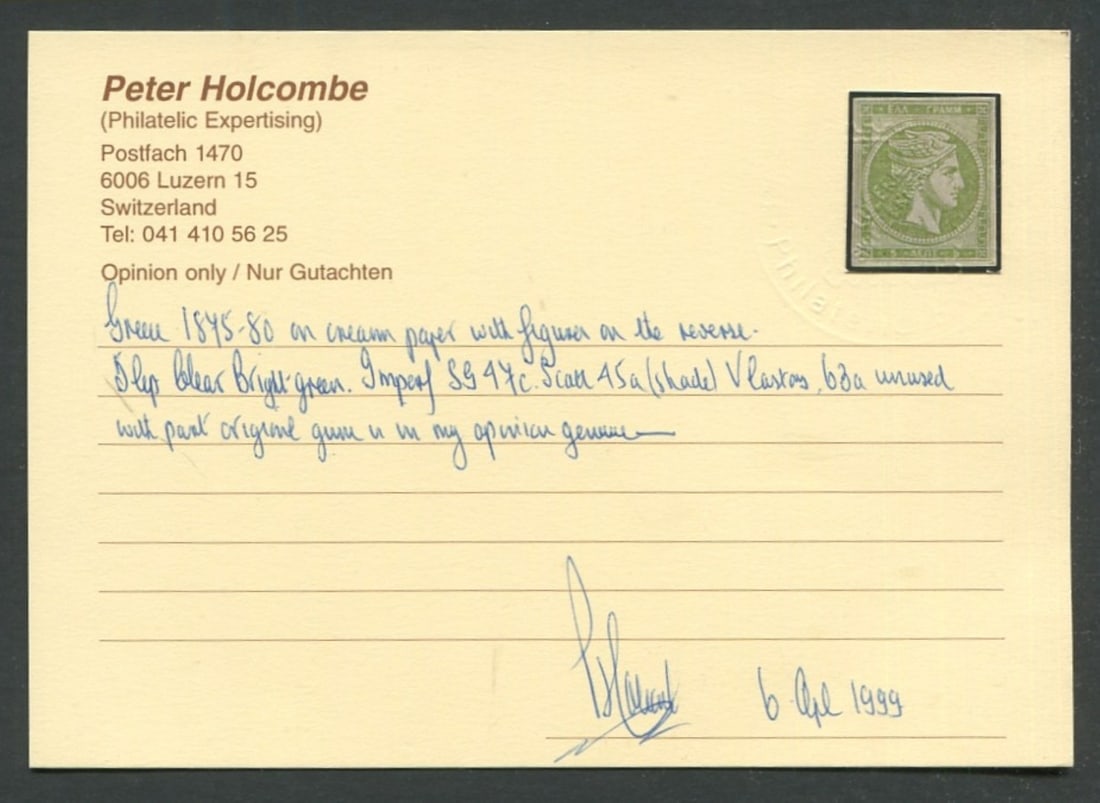 Peter Holcombe
(Philatelic Expertising)
Postfach 1470
6006 Luzern 15
Switzerland
Tel: 041 410 56 25
Opinion only / Nur Gutachten
ΕΛΛ ΓΡΑΜΜ
5 ΛΕΠΤ 5
Philat
Greece 1875-80 on cream paper with figures on the reverse.
5 lep Clear Bright green. Imperf SG 47c. Scott 45a (shade) Vlastos 63a unused
with part original gum is in my opinion genuine
6 Apl 1999